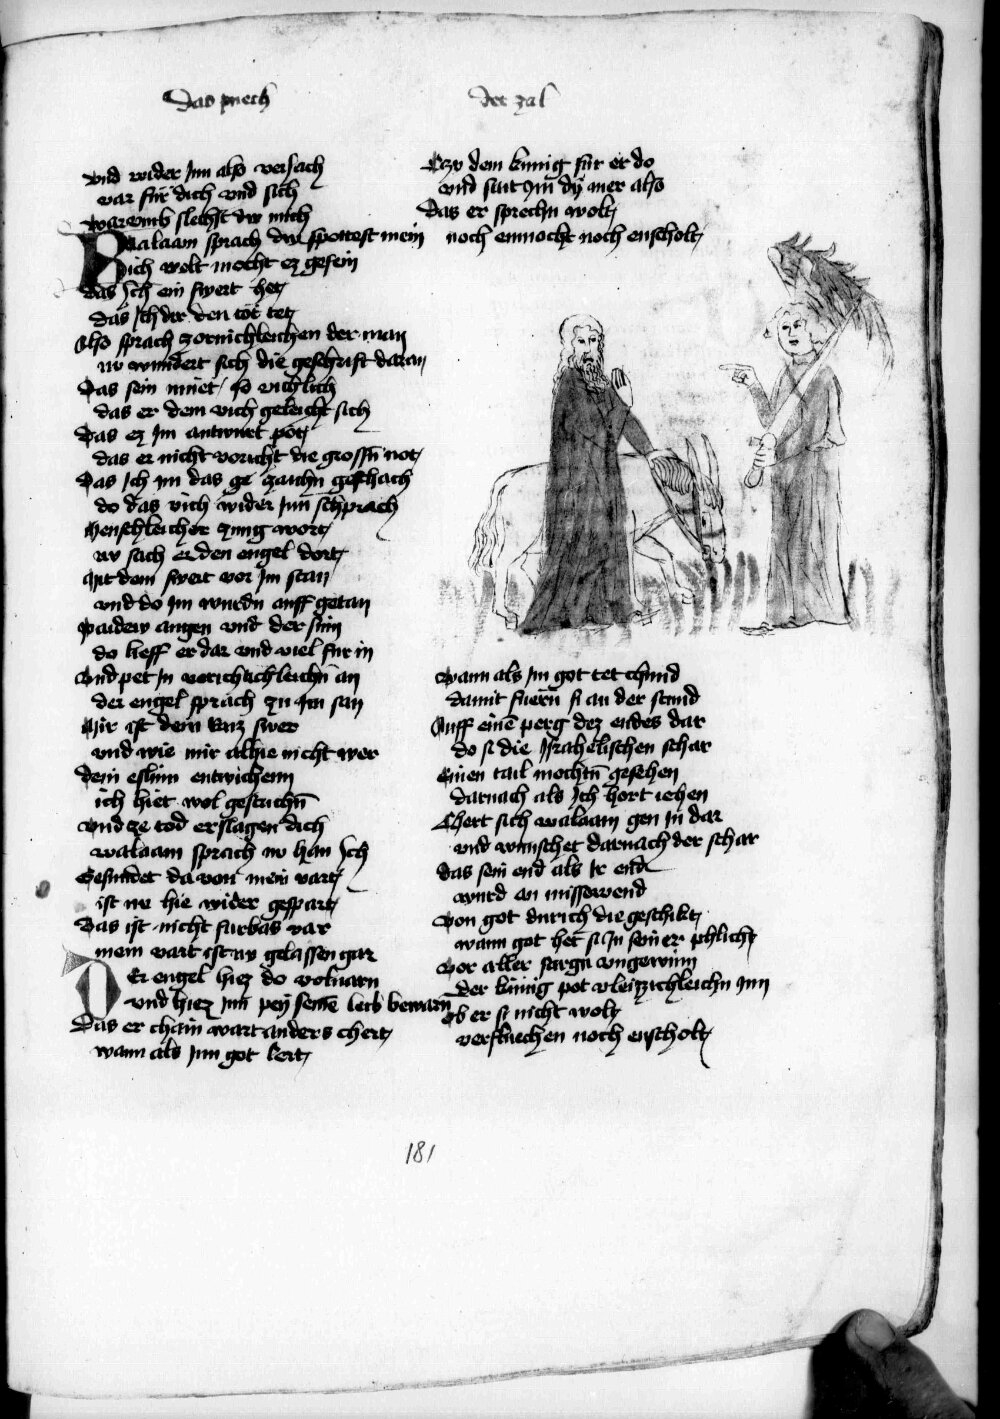 Das puech
der zal
vnd wider Jm also versach
var für dich vnd sich
warvmb slechst dw mich
Balaam sprach dw spottest mein
Jch wolt mocht ez gesein
das Jch ein swert het
das Jch dir den tot tet
Also sprach zornichleichen der man
nv wundert sich die geschrift daran
Das sein müet so vichlich
das er dem vich geleicht sich
Das ez Jm antwurt pot
das er nicht voricht die grossn not
Das Jch Jm das ge zaichn geschach
do das vich wider Jnn schprach
Menschleicher zung wort
nv sach er den engel dort
Mit dem swert vor Jm stan
vnd do Jm wurdn auff getan
Paidew augen vnd der sinn
do lieff er dar vnd viel fur in
Vnd pet Jn vorichtichleichn an
der engel sprach zu Jm san
Mir ist dein vnz swer
vnd wie mir alhie nicht wer
dein eslinn entwichenn
ich hiet wol gestuchn
Vnd ze tod erslagen dich
walaam sprach nv han Jch
Gesundet da von mein vart
ist nv hie wider gespart
Das ist nicht furbas var
mein vart ist nv gelassen gar
Der engel hiez do volvarn
vnd hiez Jnn pey seinē leib bewarn
Das er chain wart anders chert
wann als Jnn got lert
Czv dem kunig für er do
vnd sait Jm dÿ mer also
Das er sprechn wolt
noch enmocht noch enscholt
Wann als Jm got tet chund
damit fuern si an der stund
Auff einē perg dez endes dar
do si die Jsrahelischen schar
Einen tail mochtn gesehen
darnach als Jch hort iehen
Chert sich walaam gen Jn dar
vnd wunschet darnach der schar
das sein end als Ir end
wurd an missewend
Von got durich die geschikt
wann got het si Jn sein er phlicht
Vor aller sargn vngewinn
Der kunig pot vleizzichleichn Jnn
Ob er si nicht wolt
verfluechen noch enscholt
181